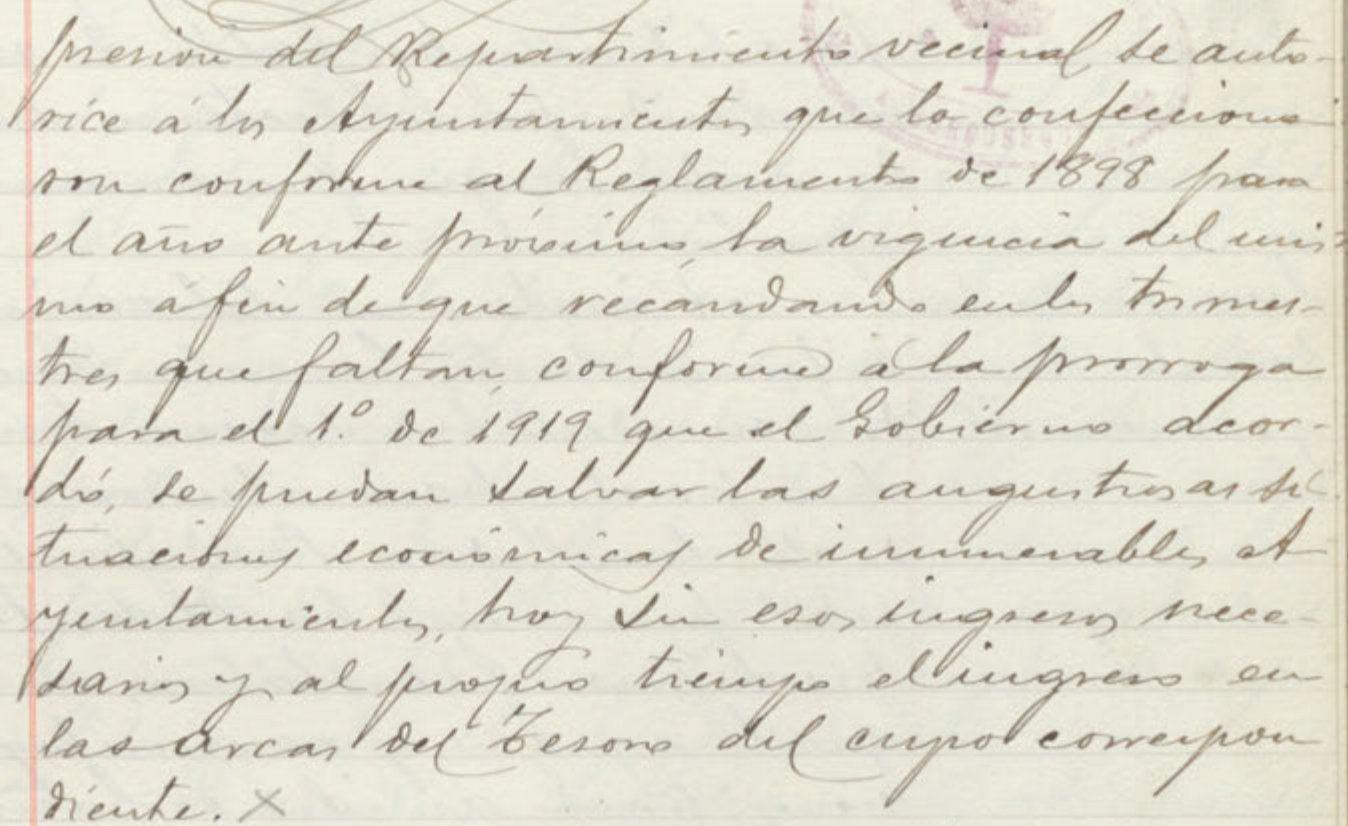 presion del Repartimiento vecinal se auto-
rice á los Ayuntamientos que lo confecciona
ron conforme al Reglamento de 1898 para
el año ante próximo, la vigencia del mis-
mo á fin de que recaudando en los trimes-
tres que faltan, conforme á la prorroga
para el 1.º de 1919 que el Gobierno acor-
dó, se puedan salvar las angustiosas si-
tuaciones económicas de innumerables A
yuntamientos, hoy sin esos ingresos nece-
sarios y al propio tiempo el ingreso en
las arcas del Tesoro del cupo correspon
diente. X